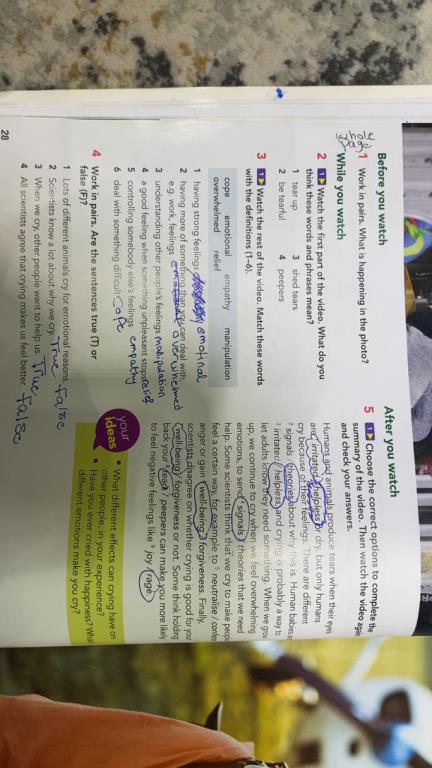 Before you watch
hole
page
1 Work in pairs. What is happening in the photo?
While you watch
2 1 Watch the first part of the video. What do you
think these words and phrases mean?
1 tear up 3 shed tears
2 be tearful 4 peepers
3 1 Watch the rest of the video. Match these words
with the definitions (1–6).
cope emotional empathy manipulation
overwhelmed relief
1 having strong feelings emotinal
2 having more of something than you can deal with,
e.g. work, feelings overwhelmed
3 understanding other people's feelings manipulation
4 a good feeling when something unpleasant stops relief
5 controlling somebody else's feelings empathy
6 deal with something difficult Cope
4 Work in pairs. Are the sentences true (T) or
false (F)?
1 Lots of different animals cry for emotional reasons. false
2 Scientists know a lot about why we cry. True
3 When we cry, other people want to help us. True
4 All scientists agree that crying makes us feel better. false
28
After you watch
5 1 Choose the correct options to complete the
summary of the video. Then watch the video again
and check your answers.
Humans and animals produce tears when their eyes
are 1 irritated / helpless or dry, but only humans
cry because of their feelings. There are different
2 signals / theories about why this is. Human babies are
3 irritated / helpless and crying is probably a way to
let adults know they need something. When we grow
up, we continue to cry when we feel overwhelming
emotions, to send 4 signals / theories that we need
help. Some scientists think that we cry to make people
feel a certain way, for example to 5 neutralise / confer
anger or gain 6 well-being / forgiveness. Finally,
scientists disagree on whether crying is good for your
7 well-being / forgiveness or not. Some think holding
back your 8 tears / peepers can make you more likely
to feel negative feelings like 9 joy / rage.
your
ideas
• What different effects can crying have on
other people, in your experience?
• Have you ever cried with happiness? What
different emotions make you cry?